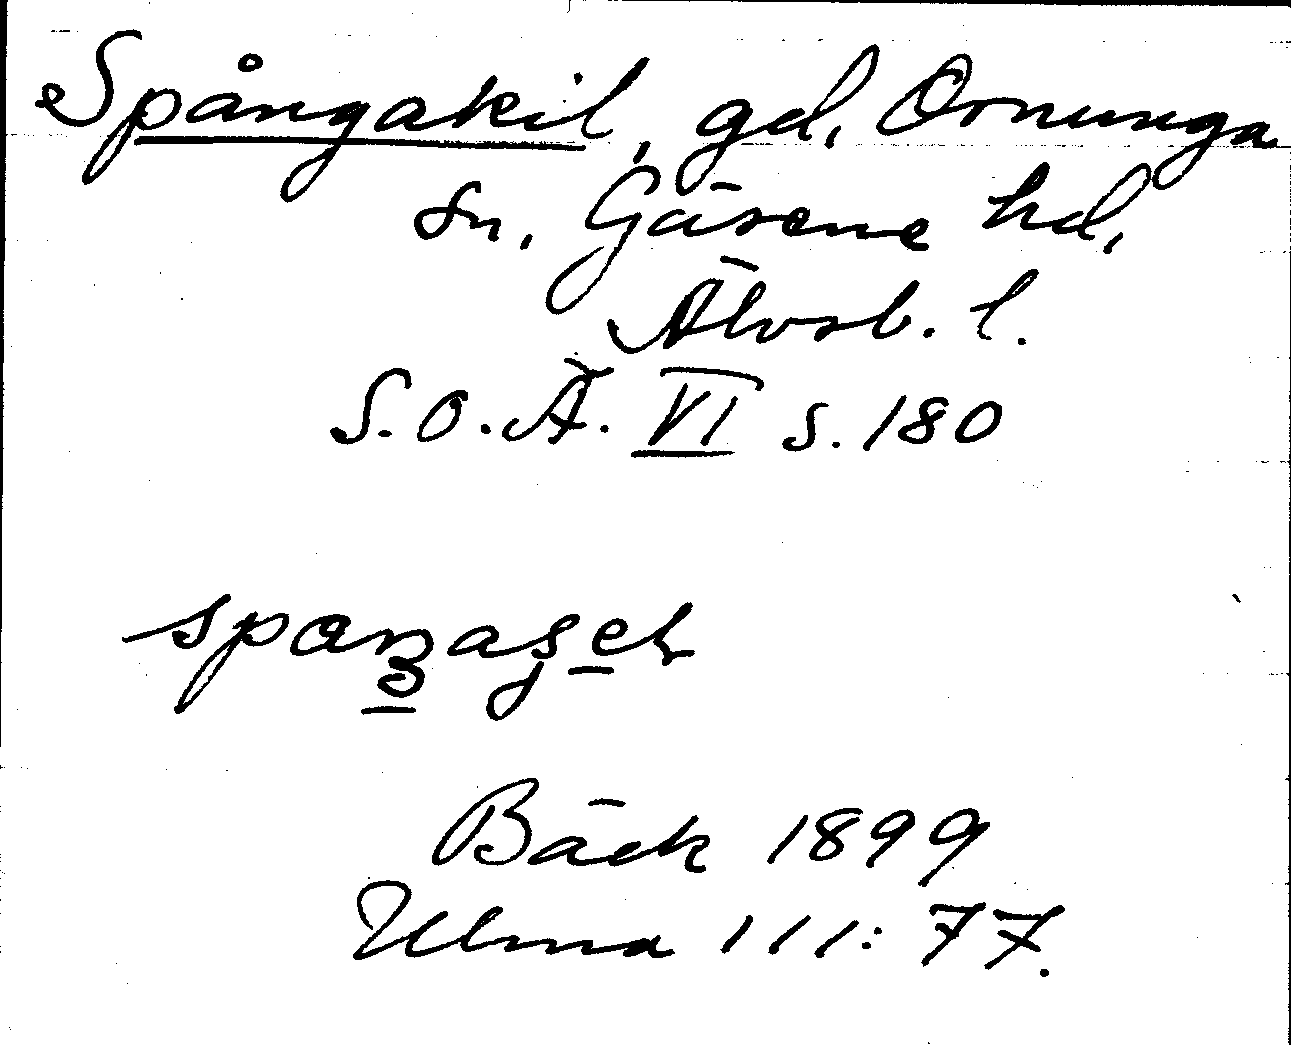 Spångakil, gd, Ornunga
sn, Gäsene hd,
Älvsb. l.
S.O.Ä. VI s. 180
Bäck 1899
Ulma 111:77.